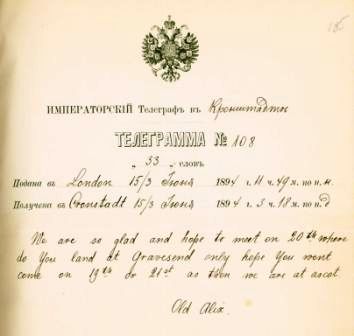 ИМПЕРАТОРСКІЙ Телеграфъ въ Кронштадтъ
ТЕЛЕГРАММА № 108
„ 33 „ словъ
Подана въ London 15/3 Іюня 1894 г. 11 ч. 49 м. по п. н.
Получена въ Cronstadt 15/3 Іюня 1894 г. 3 ч. 18 м. по п. д
We are so glad and hope to meet on 20th where
do You land at Gravesend only hope You wont
come on 19th or 21st as then we are at ascot.
Old Alix.